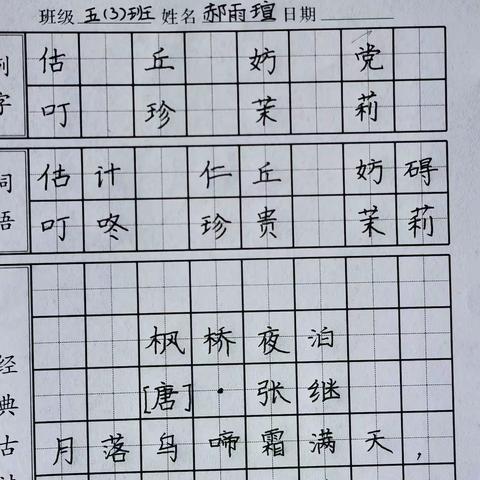 班级 五(3)班 姓名 郝雨瑄 日期
例字
估 丘 妨 党
叮 珍 茉 莉
词语
估计 仁丘 妨碍
叮咚 珍贵 茉莉
经典古诗
枫桥夜泊
[唐]·张继
月落鸟啼霜满天,